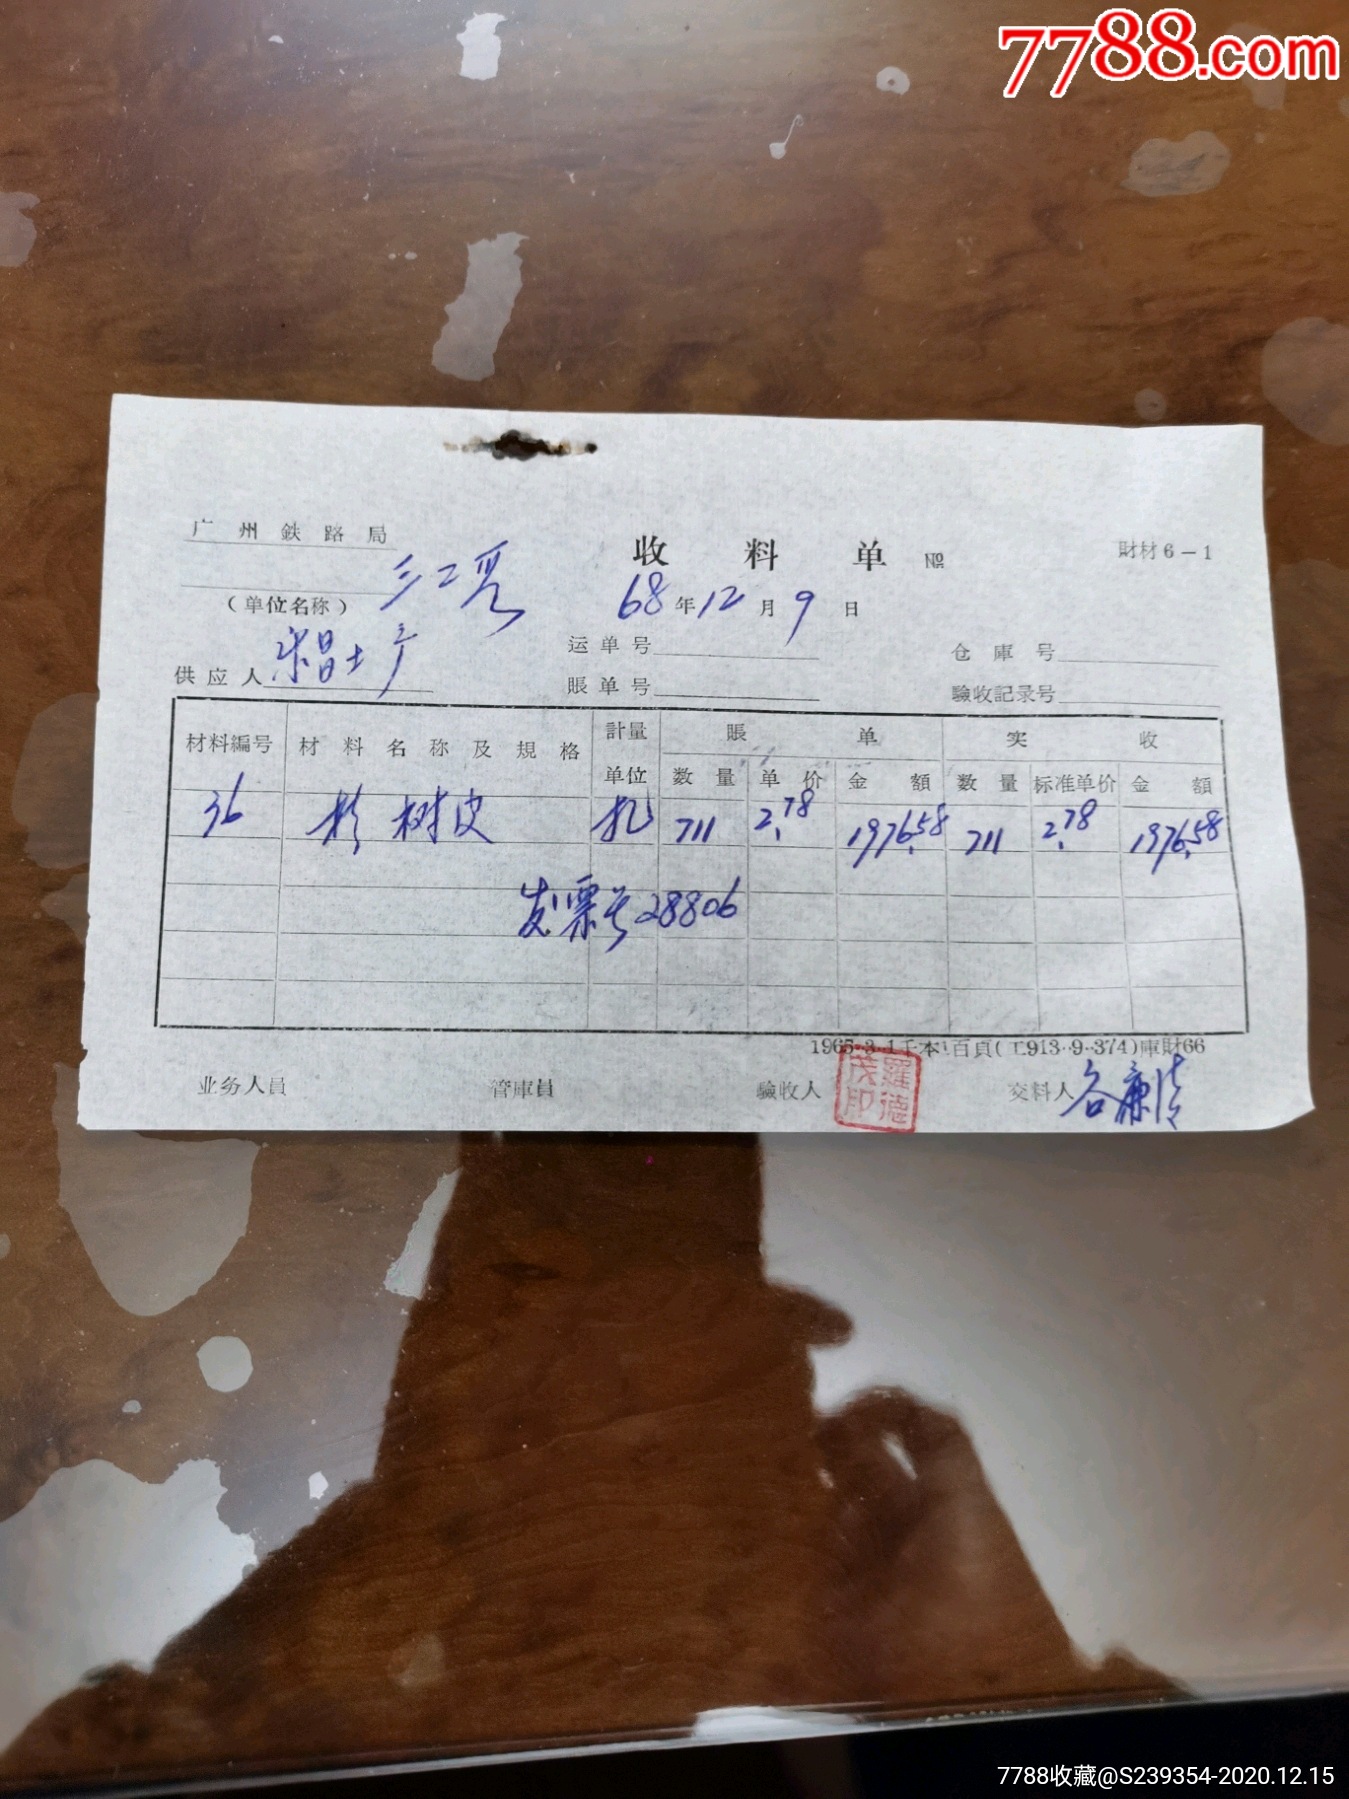 7788.com
广州鉄路局
收料单 №
財材6-1
(单位名称)
68年12月9日
供应人
运单号
仓庫号
賬单号
驗收記录号
材料編号 材料名称及規格 計量单位 賬单 实收
数量 单价 金額 数量 标准单价 金額
36 杉树皮 扎 711 2.78 1976.58 711 2.78 1976.58
发票号28806
1965·3·1千本1百頁(工913·9·374)庫財66
业务人員 管庫員 驗收人 羅德茂印 交料人 谷廉清
7788收藏@S239354-2020.12.15